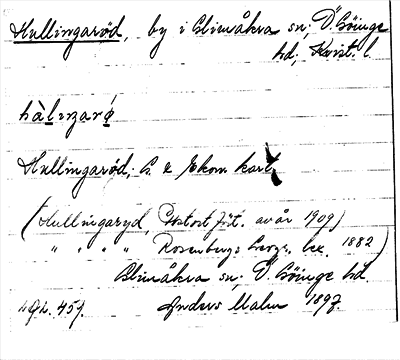 Hullingaröd, by i Glimåkra sn; Ö. Göinge
hd; Krist. l.
hàlıŋarø̀
Hullingaröd; G. & Ekon. kart.
(Hullingaryd, Postort.fört. av år 1909)
" " " " Rosenbergs Geogr. lex. 1882)
Glimåkra sn; Ö. Göinge hd.
Anders Malm 1897.